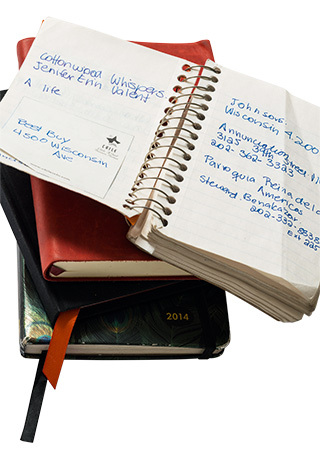 Cottonwood Whispers.
Jenifer Erin Valent
A life
Best Buy
4500 Wisconsin
Ave
Johnsons
Wisconsin 4,200
Annunciation
3125 39th
202-362-3323
Parroquia Reina de
Americas
Steward Benakatar
202-332-8838
Ext 225
2014